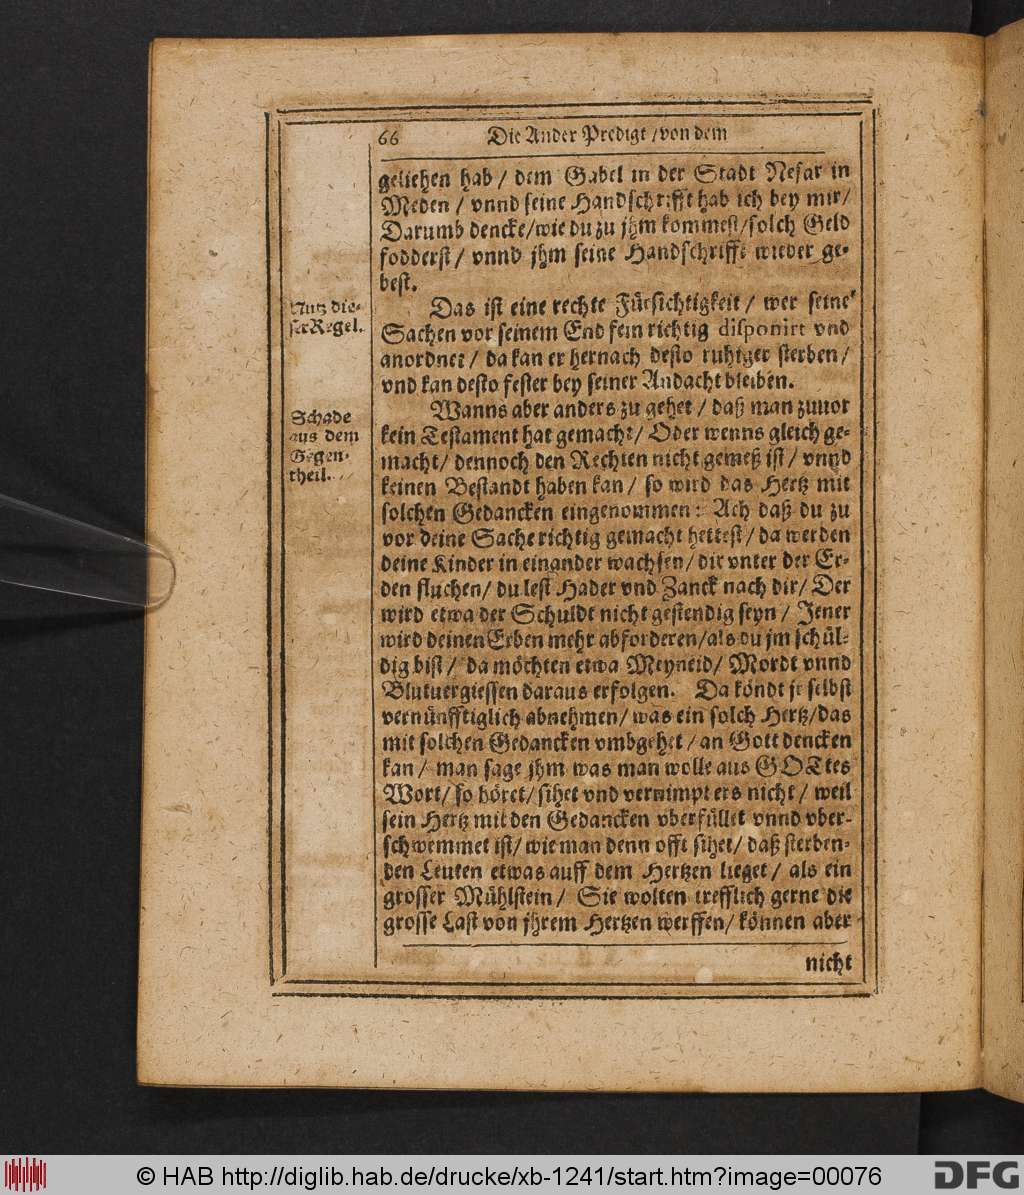 66 Die Ander Predigt / von dem
geliehen hab / dem Gabel in der Stadt Nesar in
Meden / vnnd seine Handschrifft hab ich bey mir /
Darumb dencke / wie du zu jhm kommest / solch Geld
fodderst / vnnd jhm seine Handschrifft wieder ge-
best.
Nutz die-
ser Regel.
Das ist eine rechte Fürsichtigkeit / wer seine
Sachen vor seinem End fein richtig disponirt vnd
anordnet / da kan er hernach desto ruhiger sterben /
vnd kan desto fester bey seiner Andacht bleiben.
Schade
aus dem
Gegen-
theil.
Wanns aber anders zu gehet / daß man zuuor
kein Testament hat gemacht / Oder wenns gleich ge-
macht / dennoch den Rechten nicht gemeß ist / vnnd
keinen Bestandt haben kan / so wird das Hertz mit
solchen Gedancken eingenommen: Ach daß du zu
vor deine Sache richtig gemacht hettest / da werden
deine Kinder in einander wachsen / dir vnter der Er-
den fluchen / du lest Hader vnd Zanck nach dir / Der
wird etwa der Schuldt nicht gestendig seyn / Jener
wird deinen Erben mehr abforderen / als du jm schül-
dig bist / da möchten etwa Meyneid / Mordt vnnd
Blutuergiessen daraus erfolgen. Da köndt jr selbst
vernünfftiglich abnehmen / was ein solch Hertz / das
mit solchen Gedancken vmbgehet / an Gott dencken
kan / man sage jhm was man wolle aus GOTtes
Wort / so höret / sihet vnd vernimpt ers nicht / weil
sein Hertz mit den Gedancken vberfüllet vnnd vber-
schwemmet ist / wie man denn offt sihet / daß sterben-
den Leuten etwas auff dem Hertzen lieget / als ein
grosser Mühlstein / Sie wolten trefflich gerne die
grosse Last von jhrem Hertzen werffen / können aber
nicht
© HAB http://diglib.hab.de/drucke/xb-1241/start.htm?image=00076
DFG